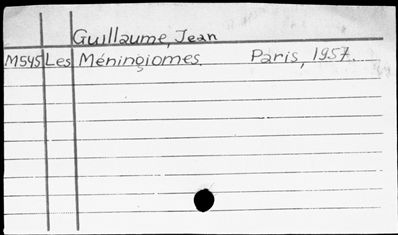 Guillaume, Jean
M545 Les Méningiomes. Paris, 1957.